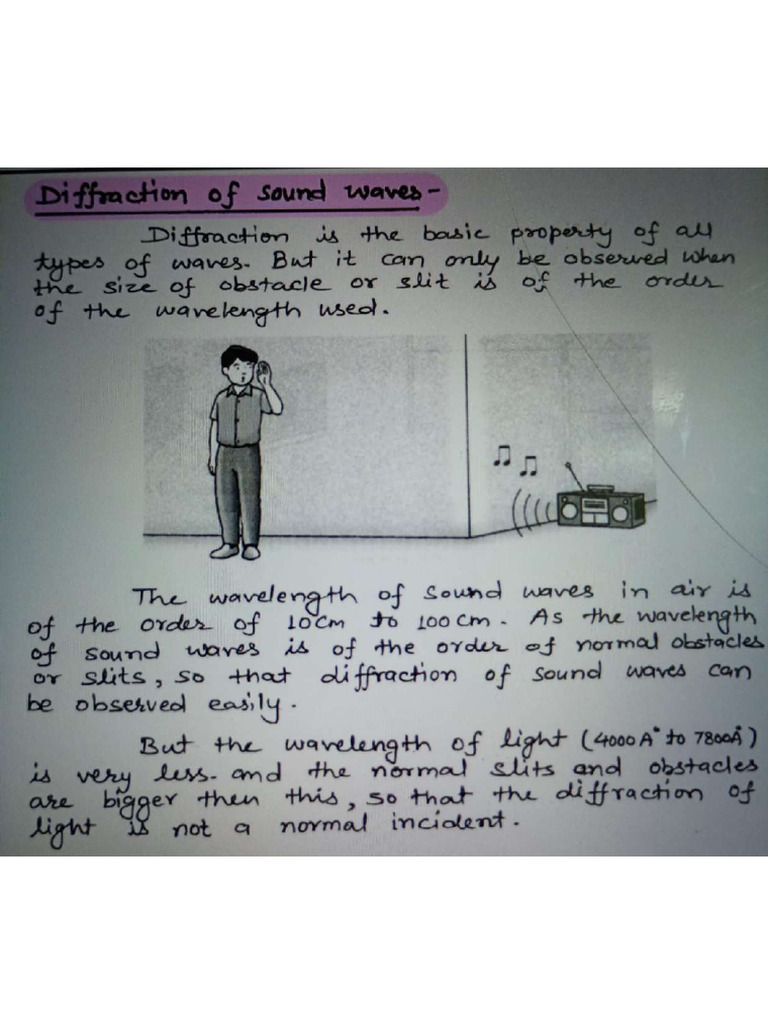 Diffraction of sound waves-
Diffraction is the basic property of all
types of waves. But it can only be observed when
the size of obstacle or slit is of the order
of the wavelength used.
The wavelength of sound waves in air is
of the order of 10cm to 100cm. As the wavelength
of sound waves is of the order of normal obstacles
or slits, so that diffraction of sound waves can
be observed easily.
But the wavelength of light (4000A° to 7800A°)
is very less. and the normal slits and obstacles
are bigger then this, so that the diffraction of
light is not a normal incident.